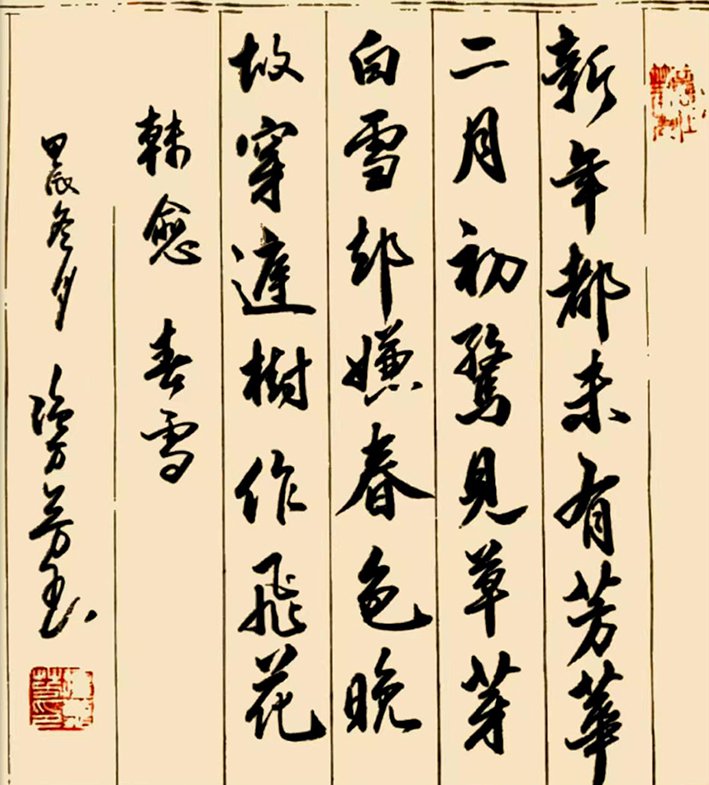 新年都未有芳華
二月初驚見草芽
白雪却嫌春色晚
故穿庭樹作飛花
韓愈 春雪
甲辰冬月